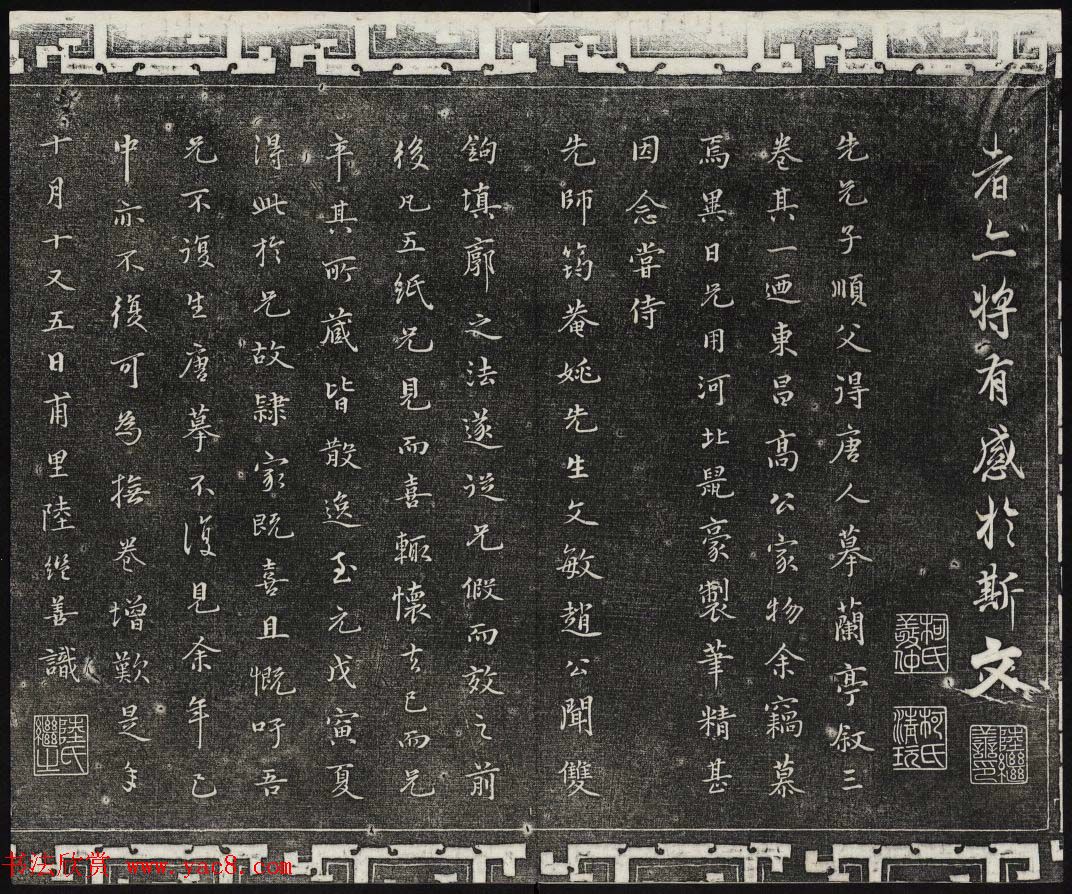 者亦將有感於斯文
陸繼善印
柯氏敬仲
柯氏清玩
先兄子順父得唐人摹蘭亭叙三
卷其一迺東昌高公家物余竊慕
焉異日兄用河北鼠豪製筆精甚
因念嘗侍
先師筠菴姚先生文敏趙公聞雙
鉤填廓之法遂從兄假而效之前
後凡五紙兄見而喜輒懷去已而兄
卒其所藏皆散逸至元戊寅夏
得此於兄故隸家既喜且慨吁吾
兄不復生唐摹不復見余年已
中亦不復可為撫卷增歎是年
十月十又五日甫里陸繼善識
陸氏繼之
书法欣赏 www.yac8.com